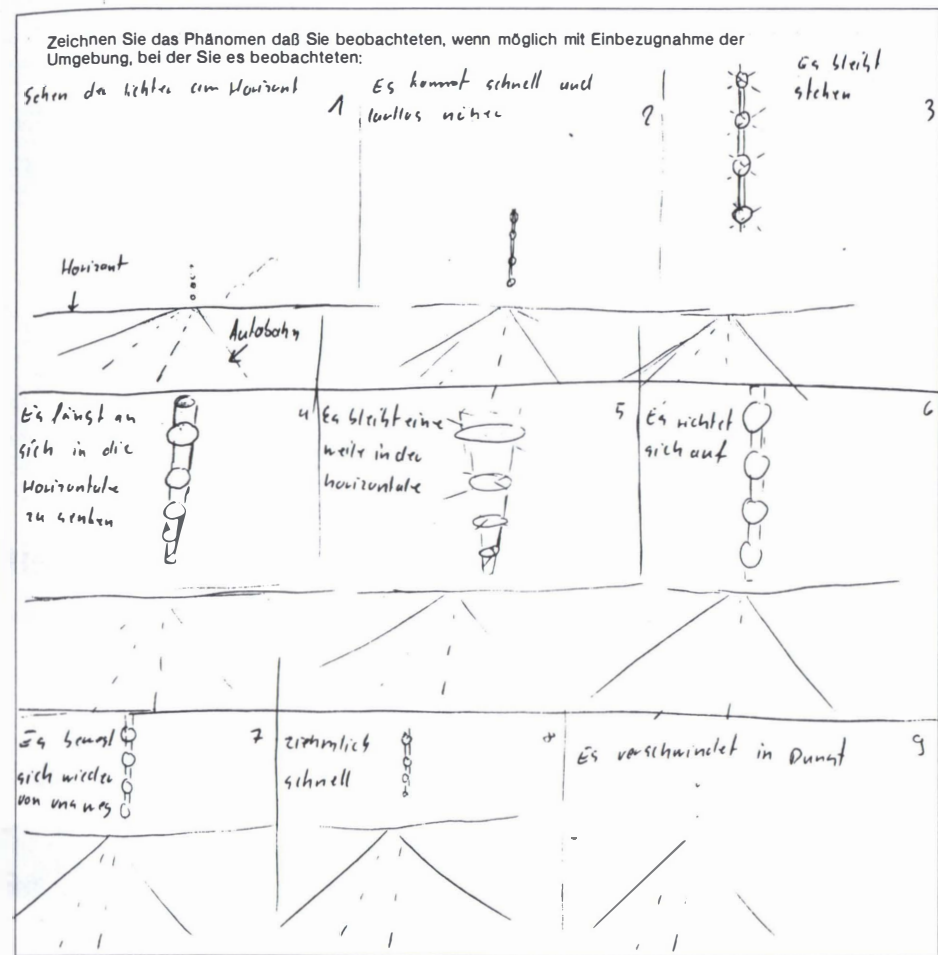 Zeichnen Sie das Phänomen daß Sie beobachteten, wenn möglich mit Einbezugnahme der
Umgebung, bei der Sie es beobachteten:
Sehen der lichter am Horizont
1
Horizont
Autobahn
Es kommt schnell und
lautlos näher
2
Es bleibt
stehen
3
Es fängt an
sich in die
Horizontale
zu senken
4
Es bleibt eine
weile in der
horizontale
5
Es richtet
sich auf
6
Es bewegt
sich wieder
von uns weg
7
ziehmlich
schnell
8
Es verschwindet in Dunst
9